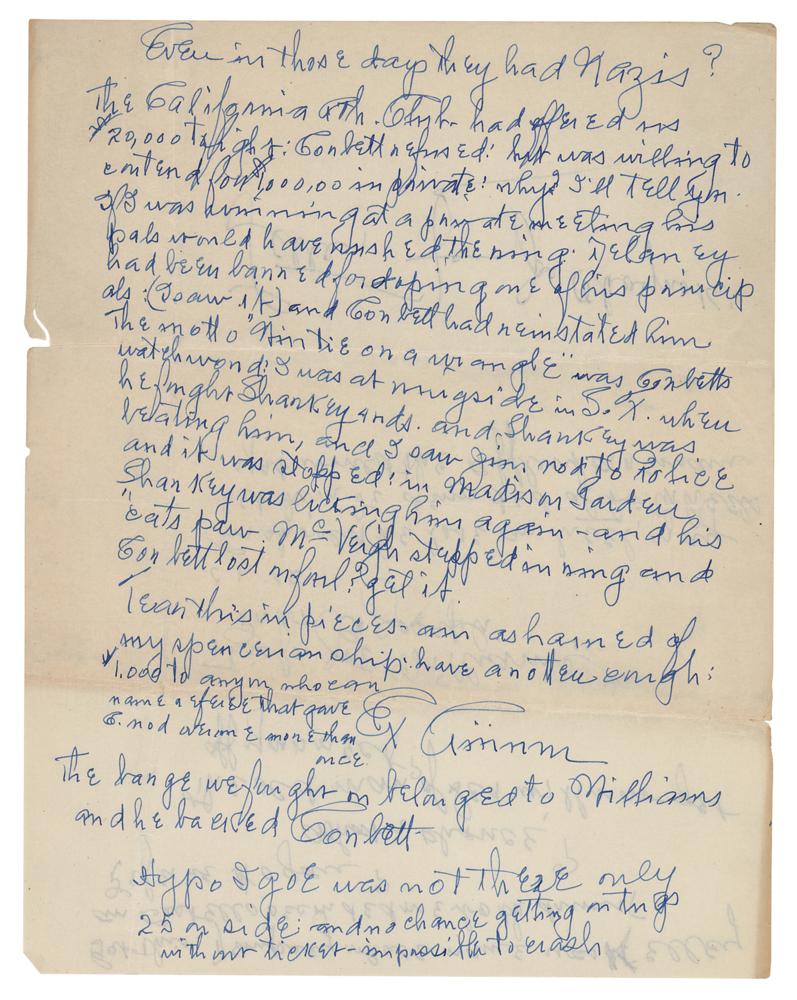 Even in those days they had Nazis?
The California Ath. Club had offered us
$20,000 to fight: Corbett refused: but was willing to
contend for $1,000,00 in private: why? I'll tell you.
If I was winning at a private meeting his
pals would have rushed the ring. Delaney
had been banned for doping one of his princip
als: (I saw it) and Corbett had reinstated him
The motto "Ain tie on a wrangle" was Corbetts
watchword: I was at ringside in S.F. when
he fought Sharkey 4 rds. and Sharkey was
beating him, and I saw Jim nod to Police
and it was stopped: in Madison Garden
Sharkey was licking him again - and his
"cats paw. McVeigh stepped in ring and
Corbett lost on foul? get it
Tear this in pieces - am ashamed of
my spencerianship: have another cough:
$1.000 to anyone who can
name a referee that gave
C. nod over me more than
once
Ex
The barge we fought on belonged to Williams
and he backed Corbett
Hypo Igoe was not there only
25 on side: and no chance getting on tugs
without ticket - impossible to crash